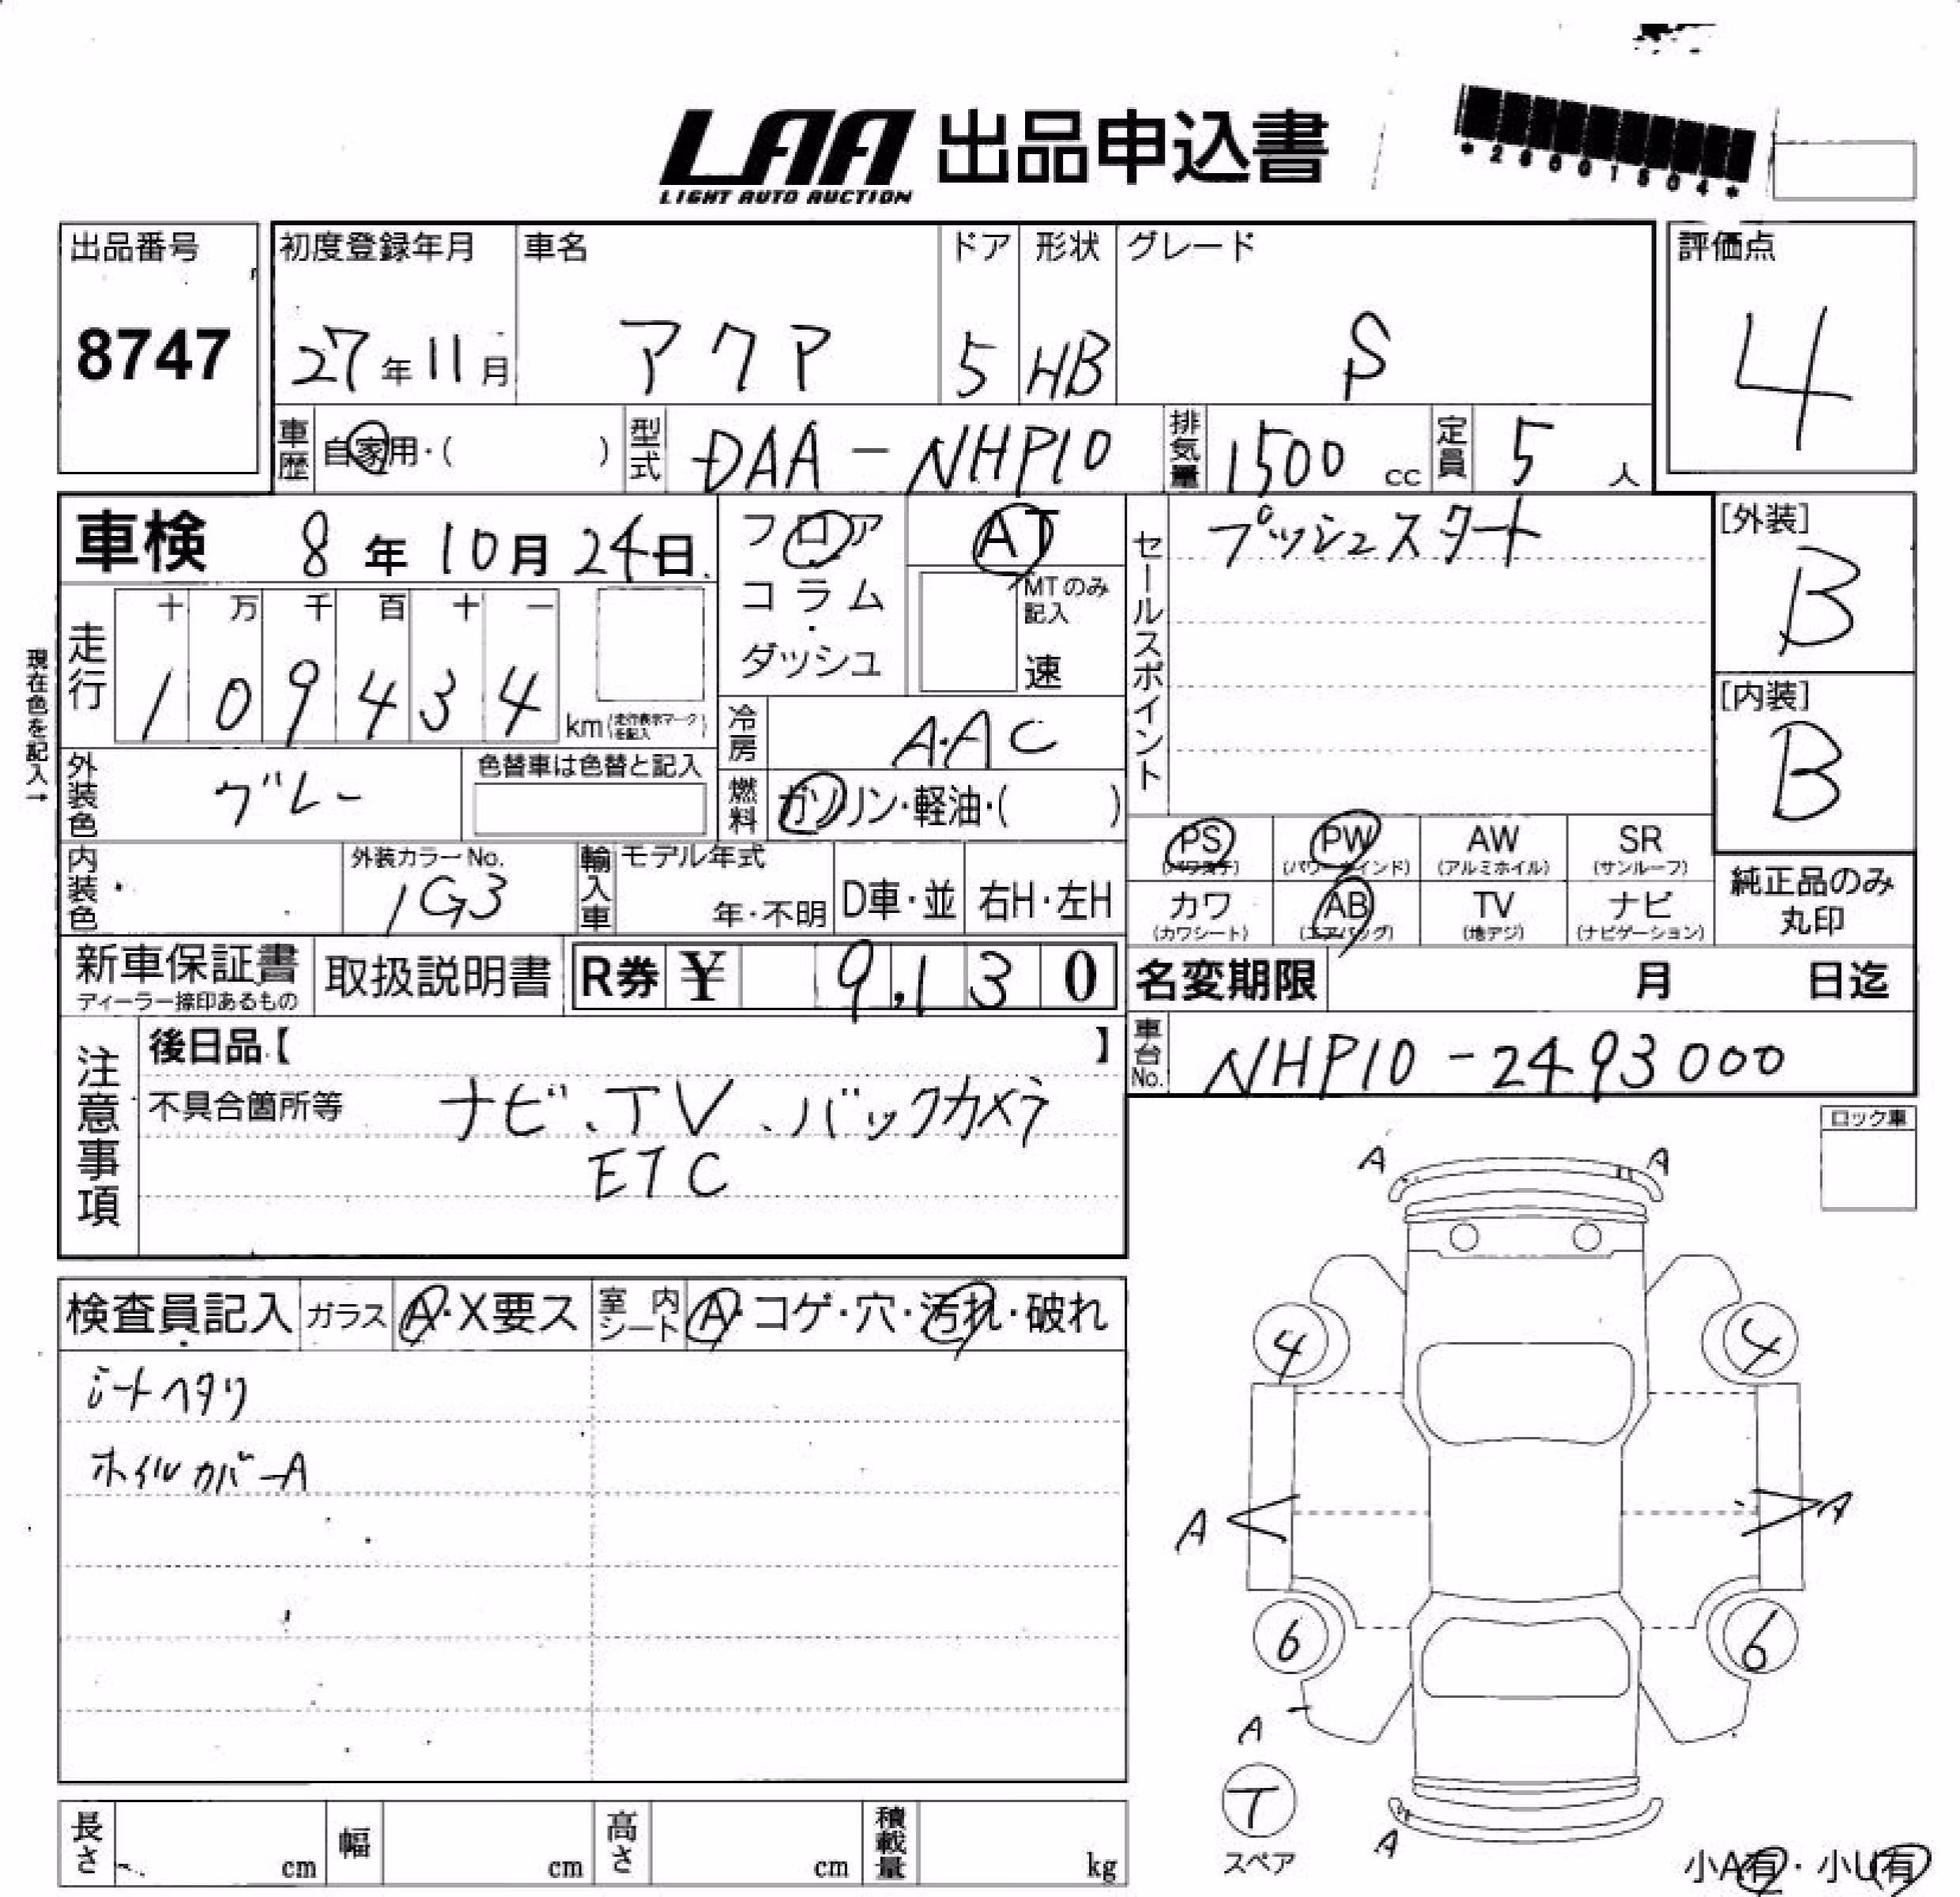 LAA 出品申込書
LIGHT AUTO AUCTION
*26001504*
出品番号
8747
初度登録年月
27年11月
車名
アクア
ドア
5
形状
HB
グレード
S
評価点
4
車歴 自家用・( )
型式 DAA-NHP10
排気量 1500 cc
定員 5 人
車検 8年10月24日
現在色を記入→
走行
十 万 千 百 十 一
1 0 9 4 3 4 km(走行表示マークを記入)
フロア
コラム・
ダッシュ
AT
MTのみ記入
速
冷房 A.AC
燃料 ガソリン・軽油・( )
外装色 グレー
色替車は色替と記入
内装色
外装カラーNo.
1G3
輸入車 モデル年式
年・不明
D車・並
右H・左H
セールスポイント
プッシュスタート
[外装]
B
[内装]
B
PS PW AW SR
(パワステ) (パワーウインド) (アルミホイル) (サンルーフ)
カワ AB TV ナビ
(カワシート) (エアバッグ) (地デジ) (ナビゲーション)
純正品のみ
丸印
新車保証書
ディーラー捺印あるもの
取扱説明書
R券 ¥ 9,130
名変期限 月 日迄
車台No. NHP10-2493000
注意事項
後日品【 】
不具合箇所等 ナビ、TV、バックカメラ
ETC
ロック車
検査員記入 ガラス A・X要ス 室内シート A・コゲ・穴・汚れ・破れ
シートヘタリ
ホイルカバーA
A A
4 4
A A
6 6
A
T
スペア
A
小A有・小U有
長さ cm 幅 cm 高さ cm 積載量 kg